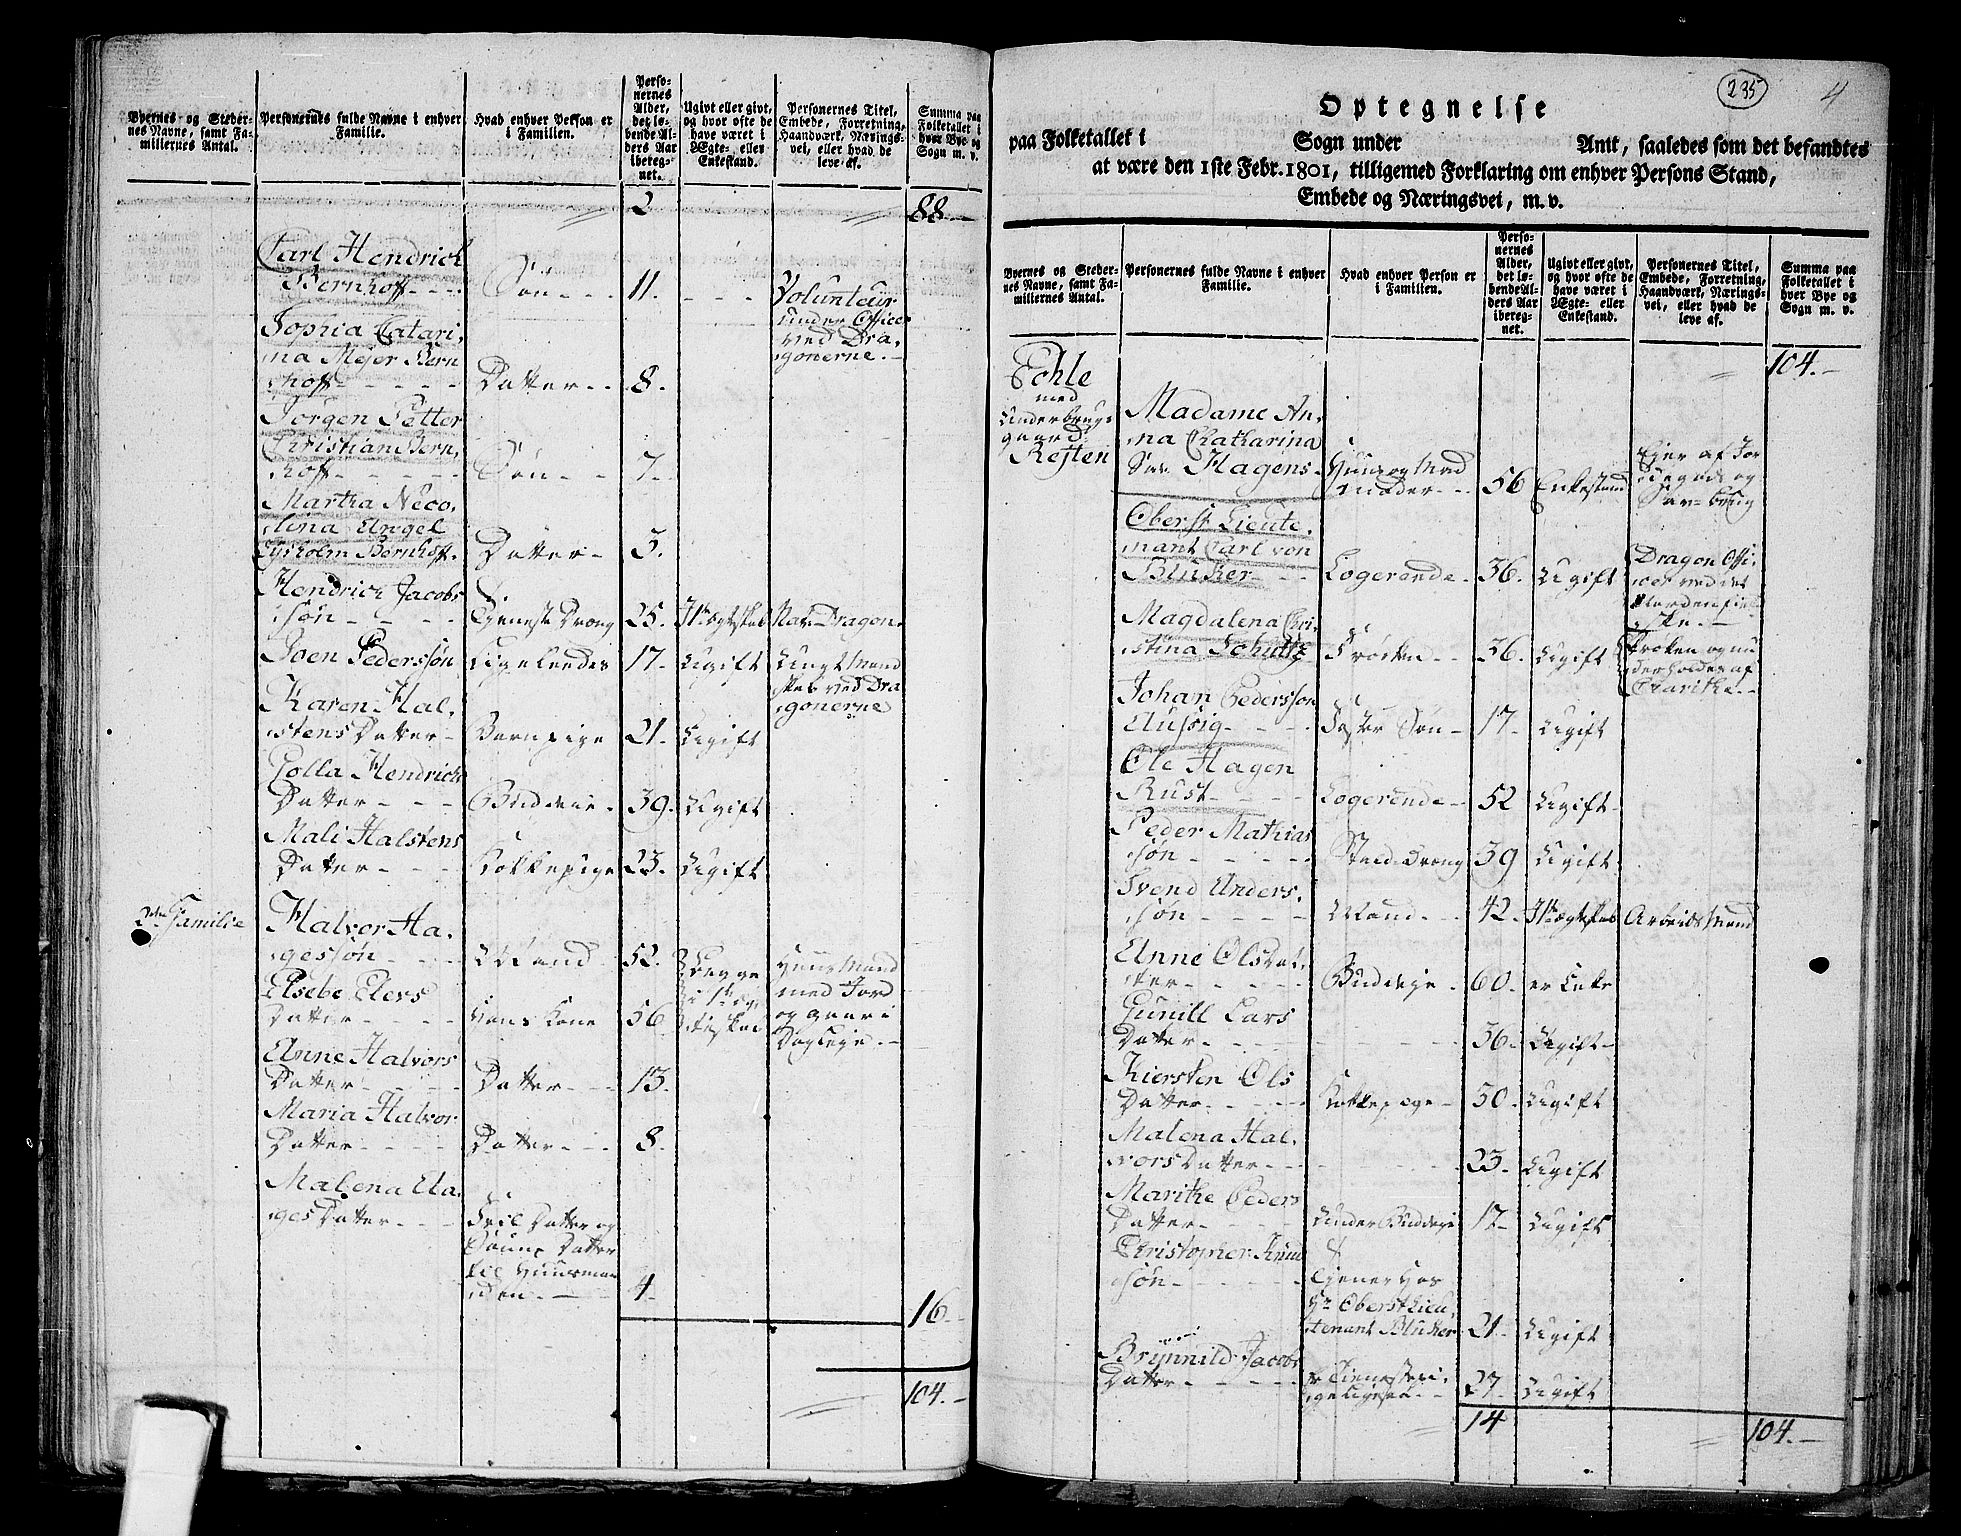 Byernes- og Stedernes Navne, samt Familiernes Antal.
Personernes fulde Navne i enhver Familie.
Hvad enhver Person er i Familien.
Personernes Alder, det løbende Alders Aar iberegnet.
Ugivt eller givt, og hvor ofte de have været i Ægte- eller Enkestand.
Personernes Titel, Embede, Forretning, Haandværk, Næringsvei, eller hvad de leve af.
Summa paa Folketallet i hver Bye og Sogn m. v.
2 88.
Carl Hendrich
Bernhoff Søn 11. Volunteur
under Office
ved Dra,
gonerne.
Sophia Catari,
na Mejer Bern
hoff Datter 8.
Jørgen Petter
Christian Bern,
hoff Søn 7.
Martha Neco,
lina Angel
Bernhoff. Datter 5.
Hendrich Jacobs
søn Tjeneste Dreng 25. 1te ægteskab Nat. Dragon.
Joen Pedersøn Ligeledes 17. Ugift Ungt Mand
skab ved Dra
gonerne
Karen Hal,
stens Datter Barnpige 21. Ugift
Golla Hendrichs
Datter Buddeie 39. Ugift
Mali Halstens
Datter Kokkepige 23. Ugift
2den Familie Halvor Aa,
gesøn Mand 52. Begge
i 1te æg,
teskab Huus Mand
med Jord
og gaar i
Dagleje
Elsebe Elers
Datter Hans Kone 56
Anne Halvors
Datter Datter 13.
Maria Halvor
Datter Datter 8.
Malena Aa,
ges Datter Datter og
Sønne Datter
til Huusman
den 4
16
104.
235
4
Optegnelse
paa Folketallet i Sogn under Amt, saaledes som det befandtes
at være den 1ste Febr. 1801, tilligemed Forklaring om enhver Persons Stand,
Embede og Næringsvei, m. v.
Byernes og Stedernes Navne, samt Familiernes Antal.
Personernes fulde Navne i enhver Familie.
Hvad enhver Person er i Familien.
Personernes Alder, det løbende Alders Aar iberegnet.
Ugivt eller givt, og hvor ofte de have været i Ægte- eller Enkestand.
Personernes Titel, Embede, Forretning, Haandværk, Næringsvei, eller hvad de leve af.
Summa paa Folketallet i hver Bye og Sogn m. v.
104.
med
Underbrugs
gaard
Rejten
Madame An,
na Chatharina
Sal. Hagens Huus og Mad
moder 56 Enkestand Ejer af Jor
degods og
Sav-brug
Oberst Lieute,
nant Carl von
Blücker Logerende 36. Ugift Dragon Offi,
cer ved det
Nordenfiel
ske.
Magdalena Chri,
stina Schultz Frøken 36. Ugift Frøken og un
derholdes af
Johan Pedersson
Aussig Foster Søn 17. Ugift
Ole Hagen
Rust Logerende 52 Ugift
Peder Mathias
søn Stald Dreng 39 Ugift
Svend Anders,
søn Mand 42. 1te ægteskab Arbeids Mand
Anne Olsdat,
ter Buddeje 60. er Enke
Gunill Lars
Datter 36. Ugift
Kiersten Ols
Datter Kokkepige 50. Ugift
Malena Hal,
vors Datter 23. Ugift
Marithe Peders
Datter Under Buddeje 12 Ugift
Christopher Knud
søn Tjener hos
Hr Oberst Lieu,
tenant Blücker 21. Ugift
Brynnild Jacobs
Datter Tieneste
pige 27 Ugift
14 104.